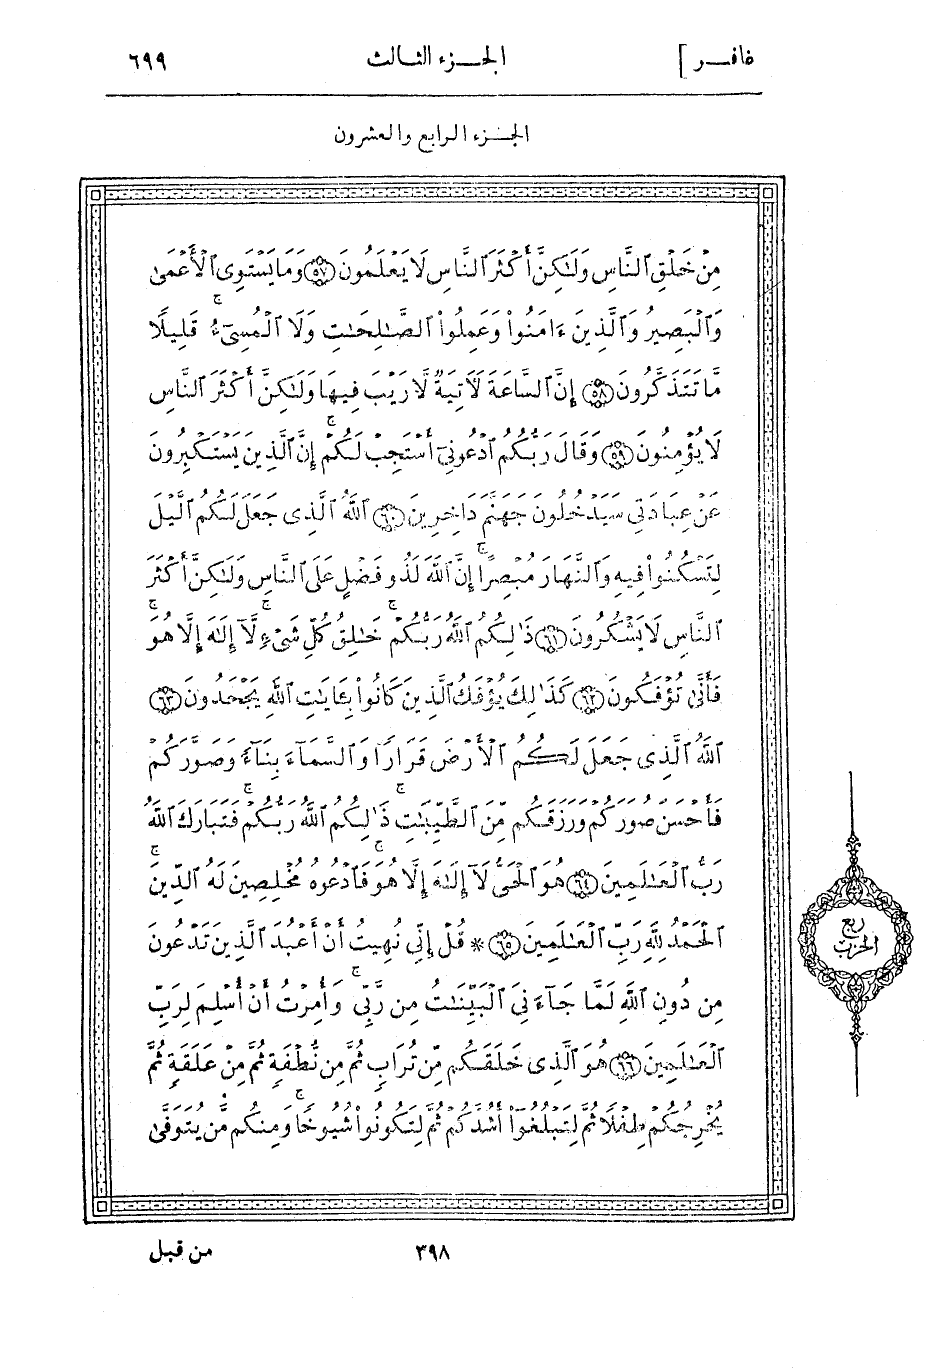 غافر ] الجزء الثالث ٦٩٩
الجزء الرابع والعشرون
مِنْ خَلْقِ ٱلنَّاسِ وَلَٰكِنَّ أَكْثَرَ ٱلنَّاسِ لَا يَعْلَمُونَ ۝٥٧ وَمَا يَسْتَوِى ٱلْأَعْمَىٰ
وَٱلْبَصِيرُ وَٱلَّذِينَ ءَامَنُوا۟ وَعَمِلُوا۟ ٱلصَّٰلِحَٰتِ وَلَا ٱلْمُسِىٓءُ ۚ قَلِيلًا
مَّا تَتَذَكَّرُونَ ۝٥٨ إِنَّ ٱلسَّاعَةَ لَءَاتِيَةٌ لَّا رَيْبَ فِيهَا وَلَٰكِنَّ أَكْثَرَ ٱلنَّاسِ
لَا يُؤْمِنُونَ ۝٥٩ وَقَالَ رَبُّكُمُ ٱدْعُونِىٓ أَسْتَجِبْ لَكُمْ ۚ إِنَّ ٱلَّذِينَ يَسْتَكْبِرُونَ
عَنْ عِبَادَتِى سَيَدْخُلُونَ جَهَنَّمَ دَاخِرِينَ ۝٦٠ ٱللَّهُ ٱلَّذِى جَعَلَ لَكُمُ ٱلَّيْلَ
لِتَسْكُنُوا۟ فِيهِ وَٱلنَّهَارَ مُبْصِرًا ۚ إِنَّ ٱللَّهَ لَذُو فَضْلٍ عَلَى ٱلنَّاسِ وَلَٰكِنَّ أَكْثَرَ
ٱلنَّاسِ لَا يَشْكُرُونَ ۝٦١ ذَٰلِكُمُ ٱللَّهُ رَبُّكُمْ ۚ خَٰلِقُ كُلِّ شَىْءٍ ۚ لَّآ إِلَٰهَ إِلَّا هُوَ ۚ
فَأَنَّىٰ تُؤْفَكُونَ ۝٦٢ كَذَٰلِكَ يُؤْفَكُ ٱلَّذِينَ كَانُوا۟ بِـَٔايَٰتِ ٱللَّهِ يَجْحَدُونَ ۝٦٣
ٱللَّهُ ٱلَّذِى جَعَلَ لَكُمُ ٱلْأَرْضَ قَرَارًا وَٱلسَّمَآءَ بِنَآءً وَصَوَّرَكُمْ
فَأَحْسَنَ صُوَرَكُمْ وَرَزَقَكُم مِّنَ ٱلطَّيِّبَٰتِ ۚ ذَٰلِكُمُ ٱللَّهُ رَبُّكُمْ ۚ فَتَبَارَكَ ٱللَّهُ
رَبُّ ٱلْعَٰلَمِينَ ۝٦٤ هُوَ ٱلْحَىُّ لَآ إِلَٰهَ إِلَّا هُوَ ۚ فَٱدْعُوهُ مُخْلِصِينَ لَهُ ٱلدِّينَ ۚ
ٱلْحَمْدُ لِلَّهِ رَبِّ ٱلْعَٰلَمِينَ ۝٦٥ * قُلْ إِنِّى نُهِيتُ أَنْ أَعْبُدَ ٱلَّذِينَ تَدْعُونَ
مِن دُونِ ٱللَّهِ لَمَّا جَآءَنِىَ ٱلْبَيِّنَٰتُ مِن رَّبِّى ۚ وَأُمِرْتُ أَنْ أُسْلِمَ لِرَبِّ
ٱلْعَٰلَمِينَ ۝٦٦ هُوَ ٱلَّذِى خَلَقَكُم مِّن تُرَابٍ ثُمَّ مِن نُّطْفَةٍ ثُمَّ مِنْ عَلَقَةٍ ثُمَّ
يُخْرِجُكُمْ طِفْلًا ثُمَّ لِتَبْلُغُوٓا۟ أَشُدَّكُمْ ثُمَّ لِتَكُونُوا۟ شُيُوخًا ۚ وَمِنكُم مَّن يُتَوَفَّىٰ
ربع
الحزب
٣٩٨ من قبل